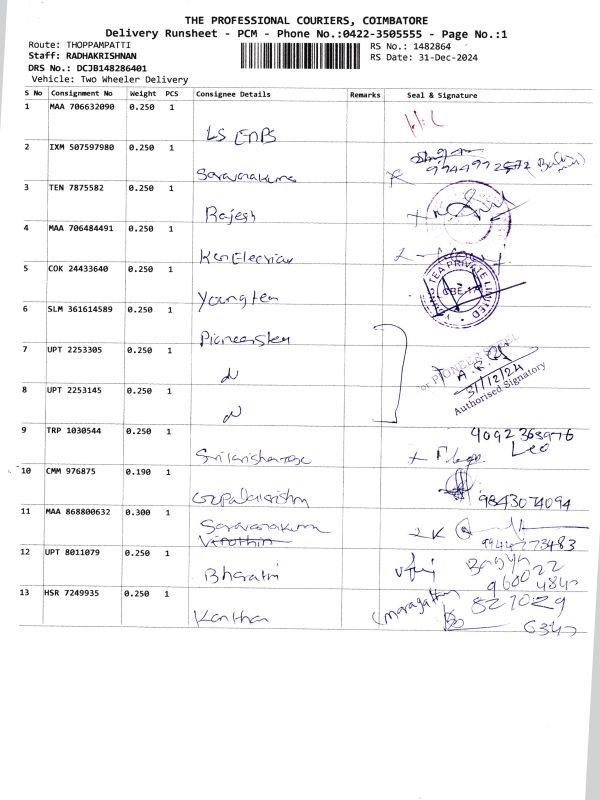 THE PROFESSIONAL COURIERS, COIMBATORE
Delivery Runsheet - PCM - Phone No.:0422-3505555 - Page No.:1
Route: THOPPAMPATTI RS No.: 1482864
Staff: RADHAKRISHNAN RS Date: 31-Dec-2024
DRS No.: DCJB148286401
Vehicle: Two Wheeler Delivery
S No Consignment No Weight PCS Consignee Details Remarks Seal & Signature
1 MAA 706632090 0.250 1
2 IXM 507597980 0.250 1
Saravanakumar
3 TEN 7875582 0.250 1
Rajesh
4 MAA 706484491 0.250 1
5 COK 24433640 0.250 1
Youngtea
TEA PRIVATE LIMITED
6 SLM 361614589 0.250 1
Pioneer
7 UPT 2253305 0.250 1
31/12/24
Authorised Signatory
8 UPT 2253145 0.250 1
9 TRP 1030544 0.250 1
Leo
10 CMM 976875 0.190 1
Gopalakrishna
9843074094
11 MAA 868800632 0.300 1
Saravanakumar
12 UPT 8011079 0.250 1
Bharathi
13 HSR 7249935 0.250 1
Kanthan